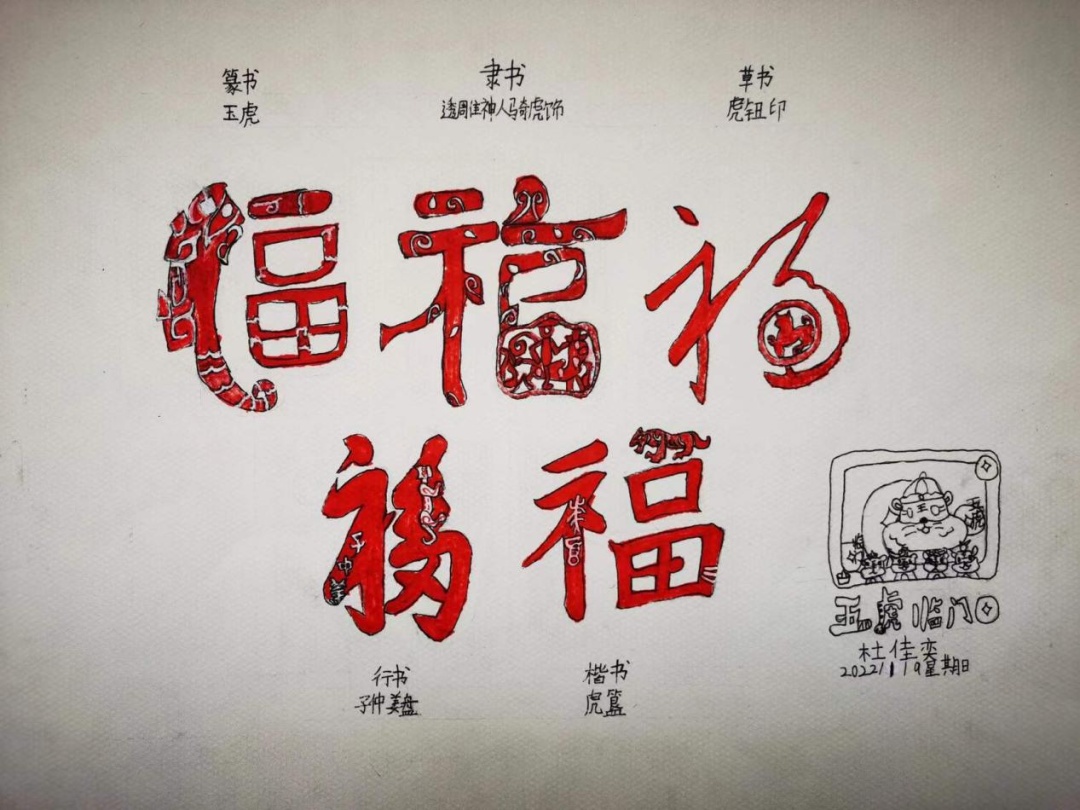 篆书
玉虎
隶书
透周佳神人骑虎饰
草书
虎钮印
福 福 福
福 福
子中姜
五虎
五虎临门
杜佳奕
2022/1/9星期日
行书
子仲姜盘
楷书
虎簋